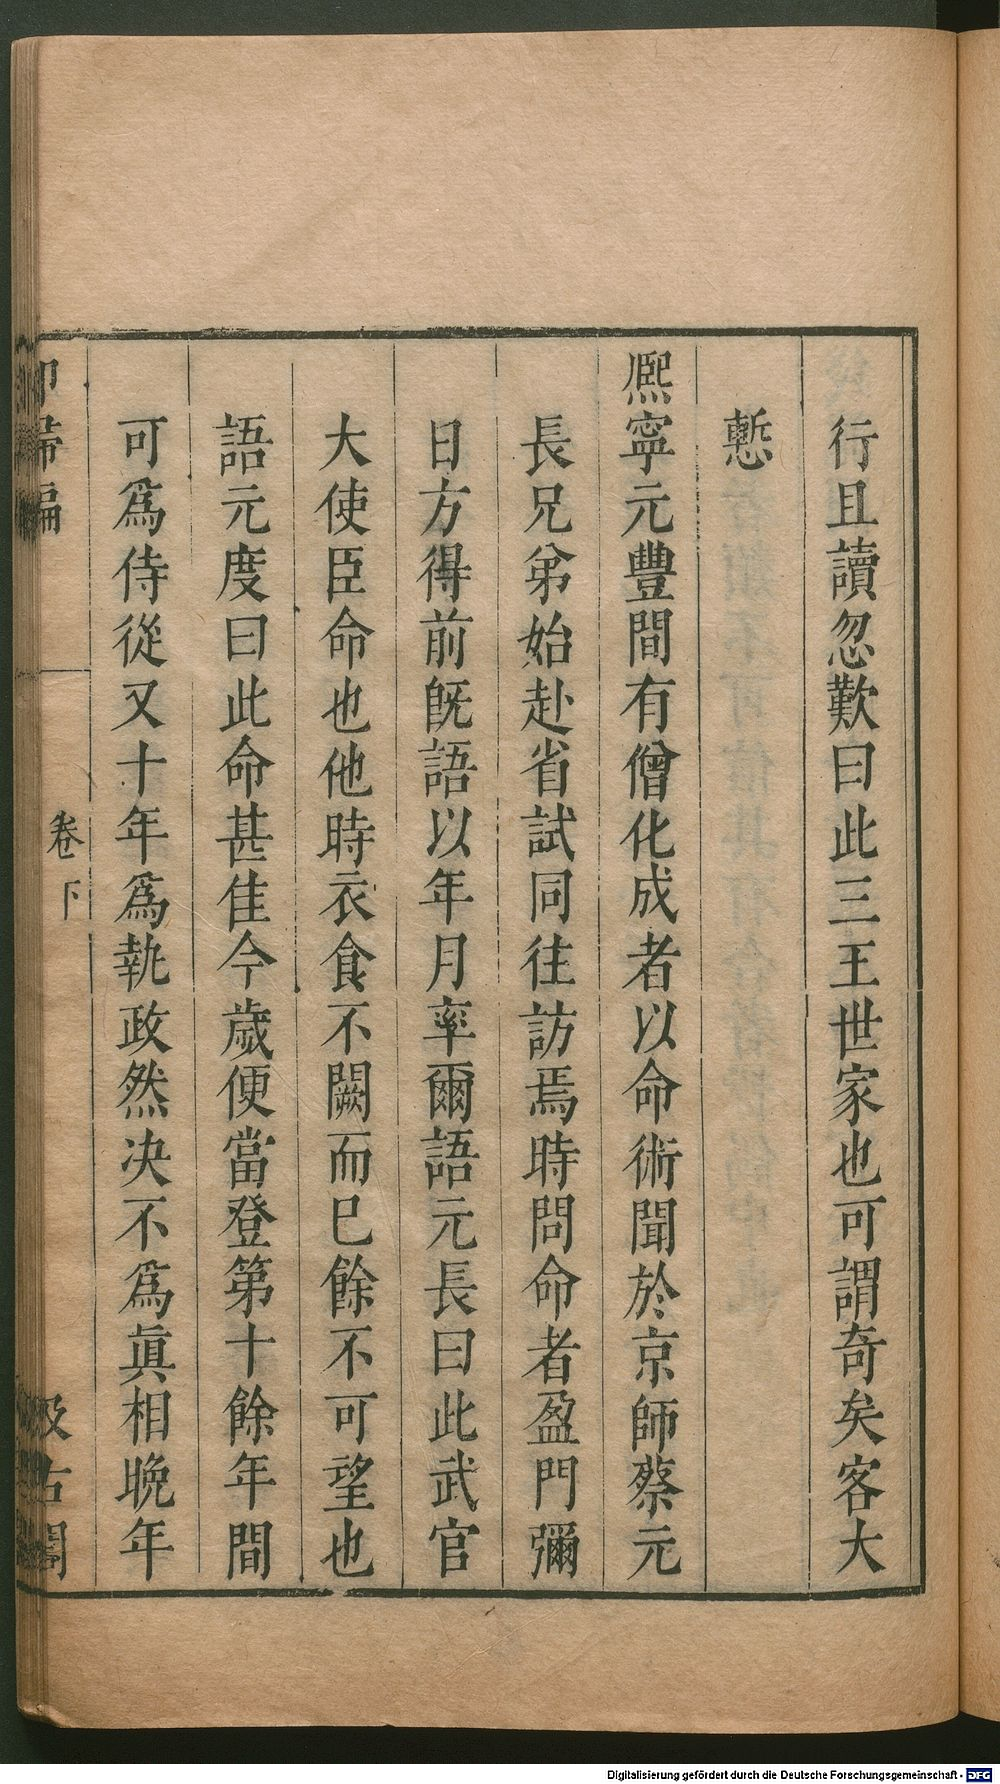 行且讀忽歎曰此三王世家也可謂奇矣客大
慙
熙寧元豐間有僧化成者以命術聞於京師蔡元
長兄弟始赴省試同往訪焉時問命者盈門彌
日方得前旣語以年月率爾語元長曰此武官
大使臣命也他時衣食不闕而已餘不可望也
語元度曰此命甚佳今歲便當登第十餘年間
可爲侍從又十年爲執政然决不爲眞相晚年
卻掃編
卷下
汲古閣
Digitalisierung gefördert durch die Deutsche Forschungsgemeinschaft - DFG